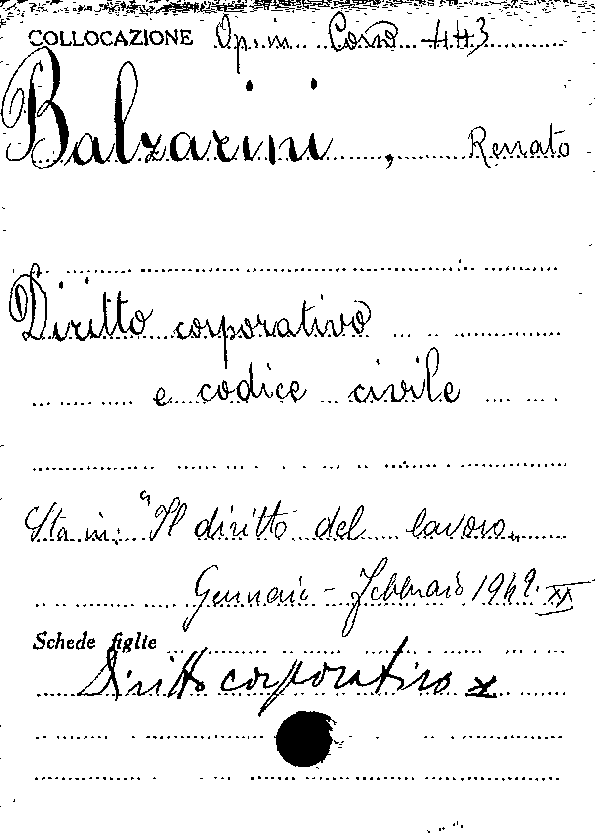 COLLOCAZIONE Op. in. Corso 443
Balzarini, Renato
Diritto corporativo
e codice civile
Sta in: "Il diritto del lavoro„
Gennaio - Febbraio 1942. XX
Schede figlie
Diritto corporativo x